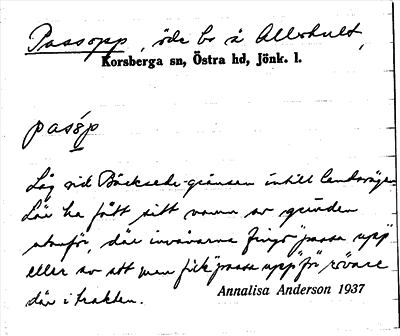 Passopp, öde bs å Allohult,
Korsberga sn, Östra hd, Jönk. l.
pasö́p
Låg vid Bäckseda-gränsen intill landsvägen.
Lär ha fått sitt namn av grinden
utanför, där invånarna fingo "passa upp"
eller av att man fick "passa upp" för rövare
där i trakten.
Annalisa Anderson 1937